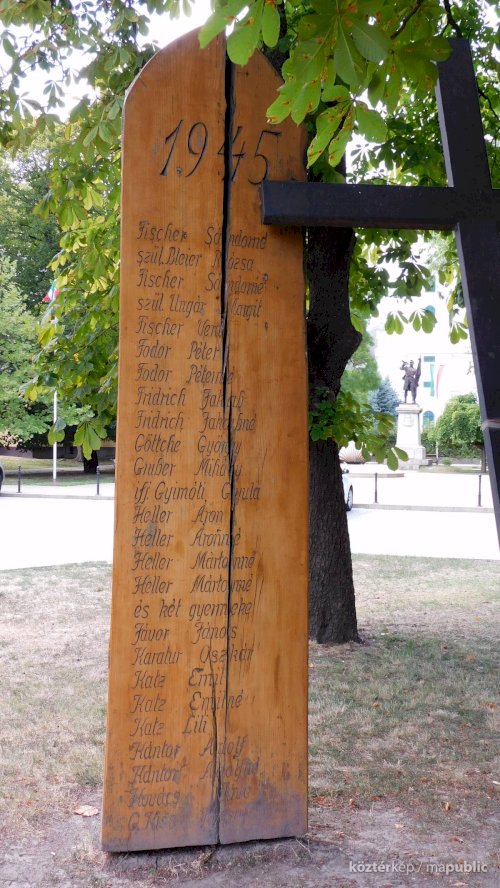 1945
Fischer Sándorné
szül. Bleier Rózsa
Fischer Sándorné
szül. Ungár Margit
Fischer
Fodor Péter
Fodor Péterné
Friedrich Jakab
Friedrich Jakabné
Göttche György
Gruber Mihály
ifj. Gyimóti Gyula
Heller Áron
Heller Áronné
Heller Mártonné
Heller Mártonné
és két gyermeke
Jávor János
Karatur Oszkár
Katz Emil
Katz Emilné
Katz Lili
Kántor Adolf
Kántor
Kovács
köztérkép / mapublic